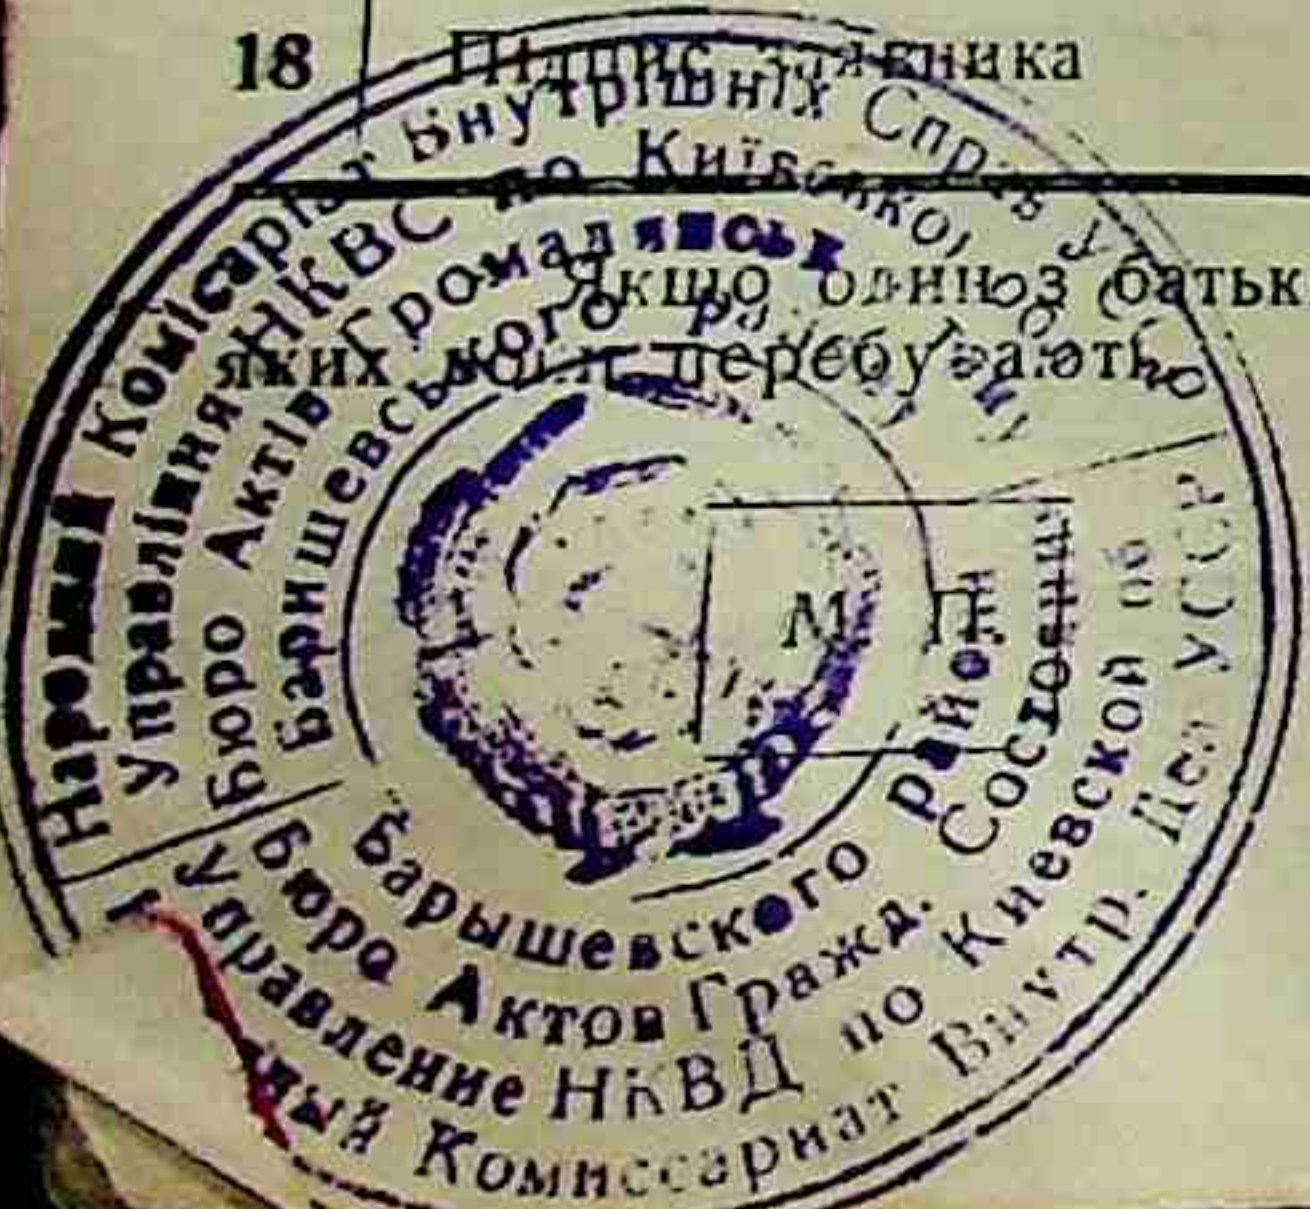 18 Підпис заявника
Якщо один з батьк
яких вони перебувають
М П
Народний Комісаріат Внутрішніх Справ УССР
Управління НКВС по Київській об
Бюро Актів Громадянськ Стану
Баришевського району
Барышевского район
Бюро Актов Гражд. Состояния
Управление НКВД по Киевской об
ный Комиссариат Внутр. Дел УССР